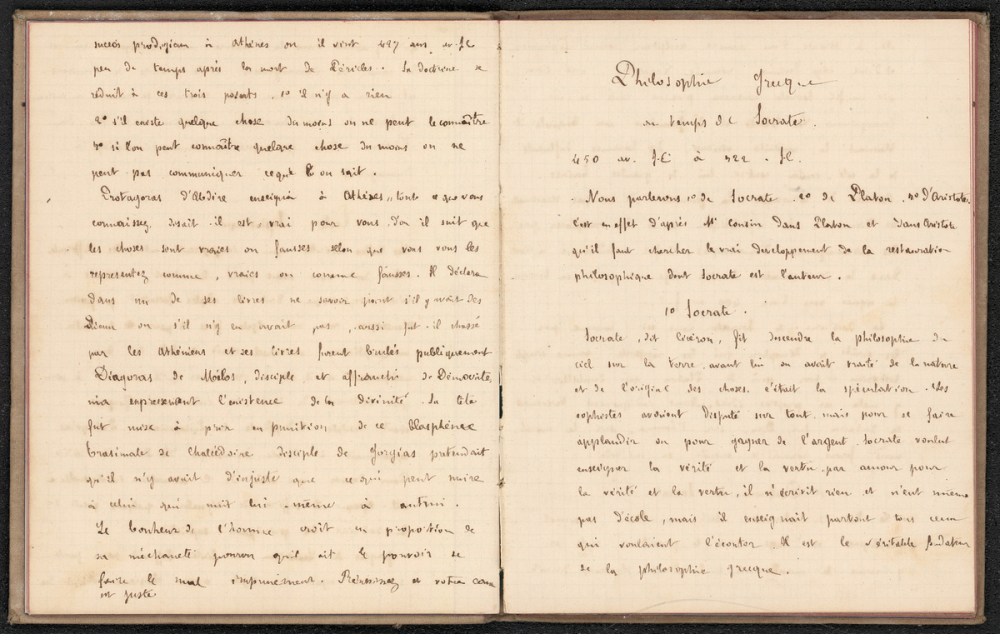 succès prodigieux à Athènes où il vint 427 ans av. J.C
peu de temps après la mort de Périclès. Sa doctrine se
réduit à ces trois points. 1º il n'y a rien
2º s'il existe quelque chose du moins on ne peut le connaître
3º si l'on peut connaître quelque chose du moins on ne
peut pas communiquer ce que l'on sait.
Protagoras d'Abdère enseigna à Athènes, tout ce que vous
connaissez disait-il est vrai pour vous. D'où il suit que
les choses sont vraies ou fausses selon que vous vous les
représentez comme vraies ou comme fausses. Il déclara
dans un de ses livres ne savoir point s'il y avait des
Dieux ou s'il n'y en avait pas, aussi fut-il chassé
par les Athéniens et ses livres furent brulés publiquement
Diagoras de Mélos, disciple et affranchi de Démocrite,
nia expressement l'existence de la divinité. Sa tête
fut mise à prix en punition de ce blasphème
Trasimale de Chalcédoine disciple de Gorgias prétendait
qu'il n'y avait d'injuste que ce qui peut nuire
à celui qui nuit lui-même à autrui.
Le bonheur de l'homme croît en proportion de
sa méchanceté pourvu qu'il ait le pouvoir de
faire le mal impunément. Réussissez et votre cause
est juste.
Philosophie Grecque
au temps de Socrate.
450 av. J.C à 322 . J.C.
Nous parlerons 1º de Socrate 2º de Platon 3º d'Aristote
c'est en effet d'après Mr Cousin dans Platon et dans Aristote
qu'il faut chercher le vrai développement de la restauration
philosophique dont Socrate est l'auteur.
1º Socrate.
Socrate, dit Cicéron, fit descendre la philosophie du
ciel sur la terre. avant lui on avait traité de la nature
et de l'origine des choses. c'était la spéculation. Les
sophistes avaient disputé sur tout, mais pour se faire
applaudir ou pour gagner de l'argent. Socrate voulut
enseigner la vérité et la vertu par amour pour
la vérité et la vertu, il n'écrivit rien et n'eut même
pas d'école, mais il enseignait partout tous ceux
qui voulaient l'écouter. Il est le véritable fondateur
de la philosophie grecque.